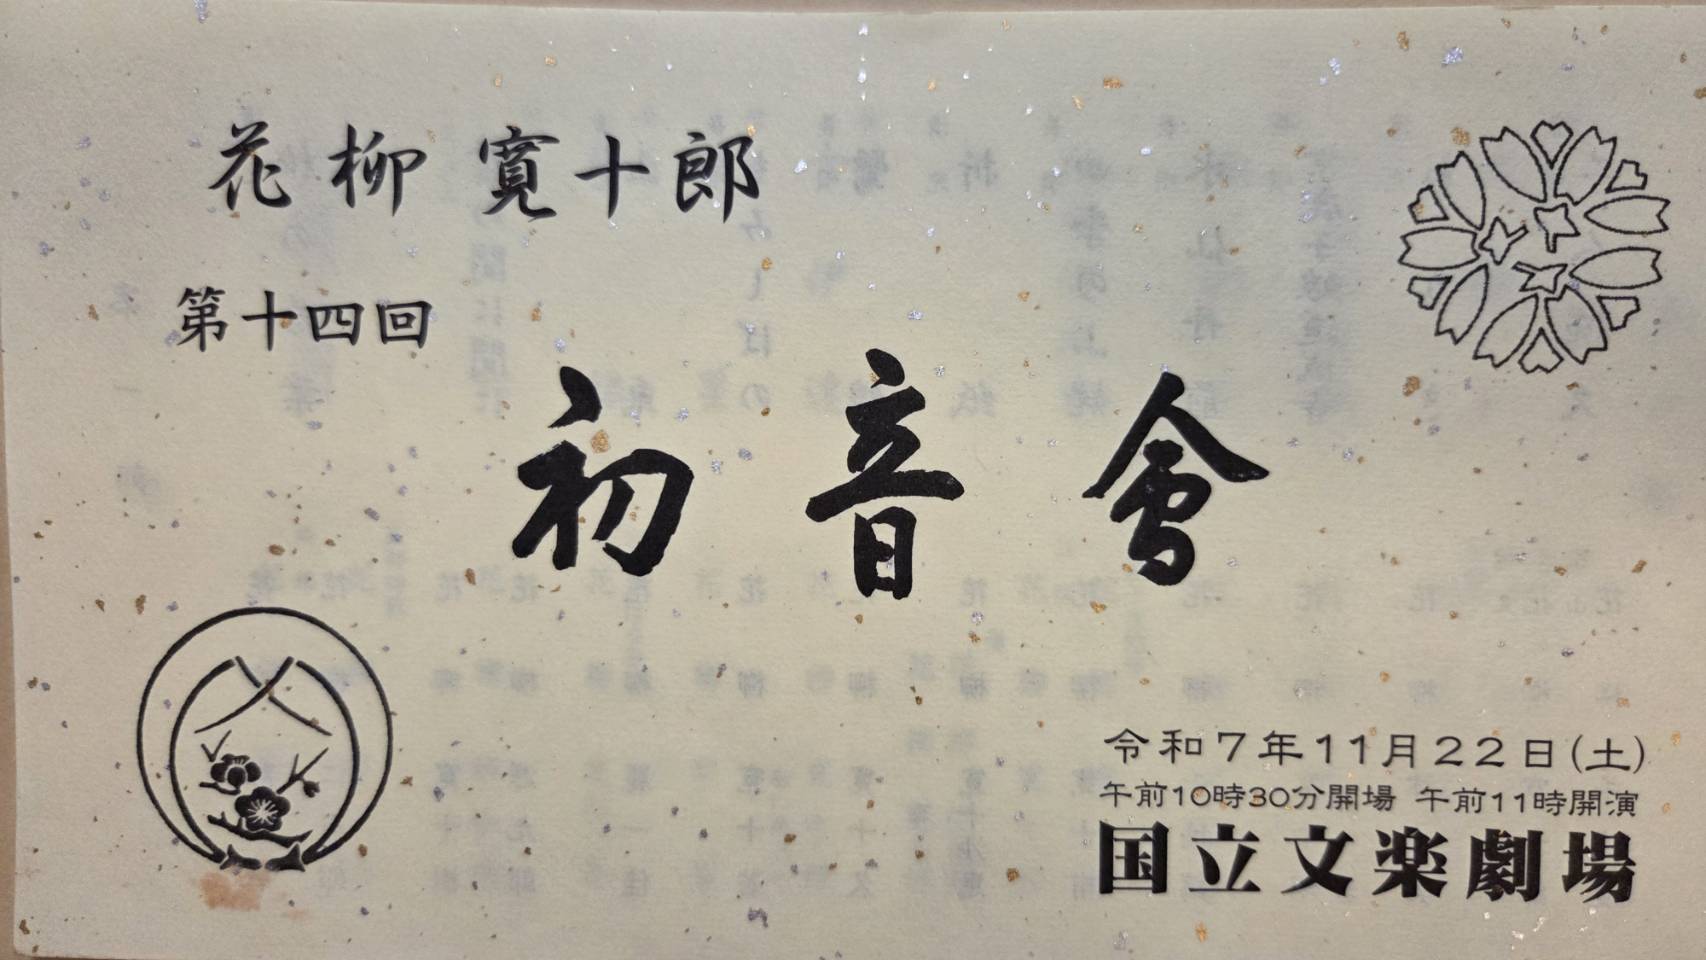 花柳 寛十郎
第十四回
初音會
令和7年11月22日(土)
午前10時30分開場 午前11時開演
国立文楽劇場